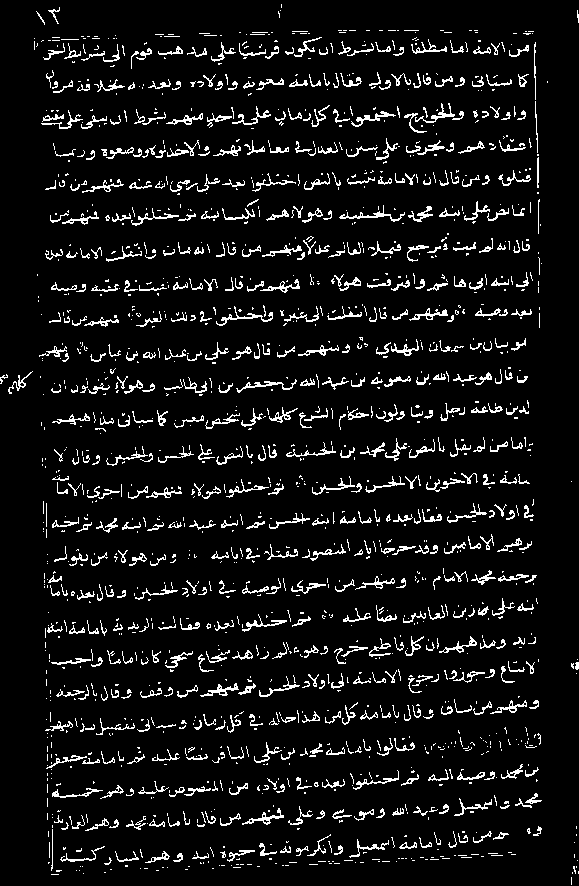 ١٣
من الامة اما مطلقا واما بشرط ان يكون قرشيا على مذهب قوم الى شرايط اخر
كما سياتي ومن قال بالاول فقال بامامة معوية واولاده وبعدهم بخلافة مروان
واولاده والخوارج اجتمعوا في كل زمان على واحد منهم بشرط ان يبقى على مقتضى
اعتقادهم ويجري على سنن العدل في معاملاتهم والا خذلوه وربما
قتلوه ومن قال ان الامامة تثبت بالنص اختلفوا بعد على رضي الله عنه فمنهم من قال
انما نص على ابنه محمد بن الحنفية وهولاء هم الكيسانية ثم اختلفوا بعده فمنهم من
قال انه لم يمت ويرجع فيملا العالم عدلا ومنهم من قال انه مات وانتقلت الامامة بعده
الى ابنه ابي هاشم وافترقت هولاء فمنهم من قال الامامة بقيت في عقبه وصية
بعد وصية ومنهم من قال انتقلت الى غيره واختلفوا في ذلك الغير فمنهم من قال
هو بيان بن سمعان النهدي ومنهم من قال هو علي بن عبد الله بن عباس ومنهم
كلهم
من قال هو عبد الله بن معوية بن عبد الله بن جعفر بن ابي طالب وهولاء يقولون ان
الدين طاعة رجل ويتاولون احكام الشرع كلها على شخص معين كما سياتي مذاهبهم
واما من لم يقل بالنص على محمد بن الحنفية قال بالنص على الحسن والحسين وقال لا
امامة في الاخوين الا الحسن والحسين ثم اختلفوا هولاء فمنهم من اجرى الامامة
في اولاد الحسن فقال بعده بامامة ابنه الحسن ثم ابنه عبد الله ثم ابنه محمد ثم اخيه
ابرهيم الامامين وقد خرجا ايام المنصور فقتلا في ايامه ومن هولاء من يقول
برجعة محمد الامام ومنهم من اجرى الوصية في اولاد الحسين وقال بعده بامامة
ابنه علي بن زين العابدين نصا عليه ثم اختلفوا بعده فقالت الزيدية بامامة ابنه
زيد ومذهبهم ان كل فاطمي خرج وهو عالم زاهد شجاع سخي كان اماما واجب
الاتباع وجوزوا رجوع الامامة الى اولاد الحسن ثم منهم من وقف وقال بالرجعة
ومنهم من ساق وقال بامامة كل من هذا حاله في كل زمان وسياتي تفصيل مذاهبهم
واما الامامية فقالوا بامامة محمد بن علي الباقر نصا عليه ثم بامامة جعفر
بن محمد وصية اليه ثم اختلفوا بعده في اولاده من المنصوص عليه وهم خمسة
محمد واسمعيل وعبد الله وموسى وعلي فمنهم من قال بامامة محمد وهم العمارية
ومنهم من قال بامامة اسمعيل وانكر موته في حيوة ابيه وهم المباركية